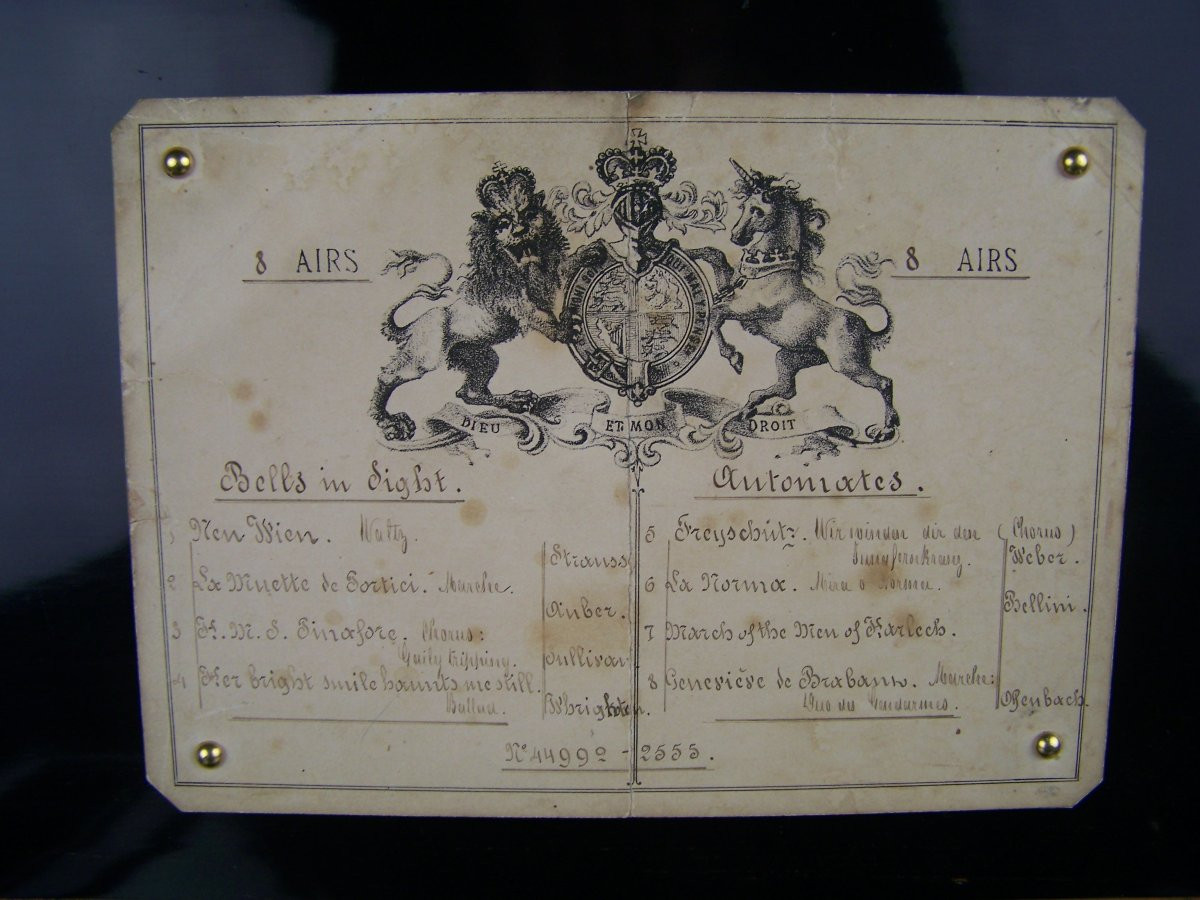 8 AIRS
8 AIRS
HONI SOIT QUI MAL Y PENSE
DIEU ET MON DROIT
Bells in Sight.
1 Neu Wien. Waltz.
Strauss
2 La Muette de Portici. Marche.
Auber.
3 H. M. S. Pinafore. Chorus:
Gaily tripping.
Sullivan
4 Her bright smile haunts me still.
Ballad.
Whrighten.
Automates.
5 Freyschütz. Wir winden dir den (Chorus)
Weber.
6 La Norma. Mira o Norma.
Bellini.
7 March of the Men of Harlech.
8 Geneviève de Brabann. Marche:
Duo des Gendarmes.
Offenbach.
No 44990 - 2555.